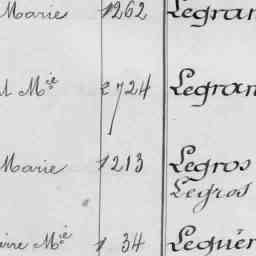 Marie 1262 Legran
Mie 2724 Legran
Marie 1213 Legros
Legros
Mie 1 34 Leguér